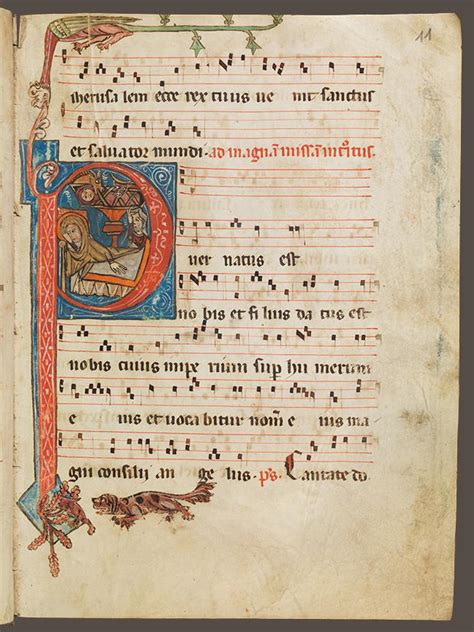 11
iherusa lem ecce rex tuus ue nit sanctus
et saluator mundi. ad magnā missā ītroitus.
P
uer natus est
no bis et fi lius da tus est
nobis cuius impe rium sup hu merum
e ius et uocabitur nom̄ e ius ma
gni consilii an ge lus. ps. Cantate do